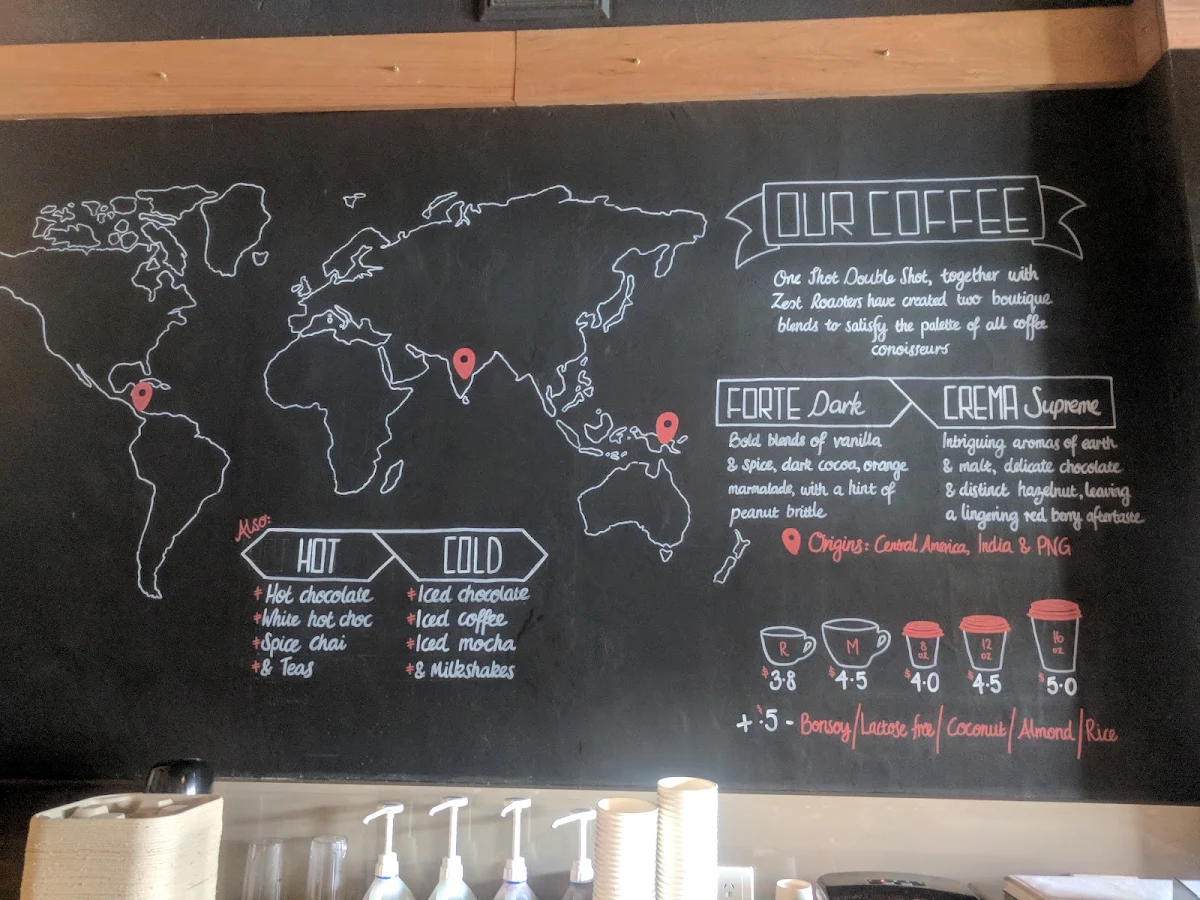 OUR COFFEE
One Shot Double Shot, together with
Zest Roasters have created two boutique
blends to satisfy the palette of all coffee
conoisseurs
FORTE Dark
Bold blends of vanilla
& spice, dark cocoa, orange
marmalade, with a hint of
peanut brittle
CREMA Supreme
Intriguing aromas of earth
& malt, delicate chocolate
& distinct hazelnut, leaving
a lingering red berry aftertaste
Origins: Central America, India & PNG
Also:
HOT
Hot chocolate
White hot choc
Spice chai
& Teas
COLD
Iced chocolate
Iced coffee
Iced mocha
& Milkshakes
R M 8 oz 12 oz 16 oz
$3.8 $4.5 $4.0 $4.5 $5.0
+ $.5 - Bonsoy/Lactose free/Coconut/Almond/Rice